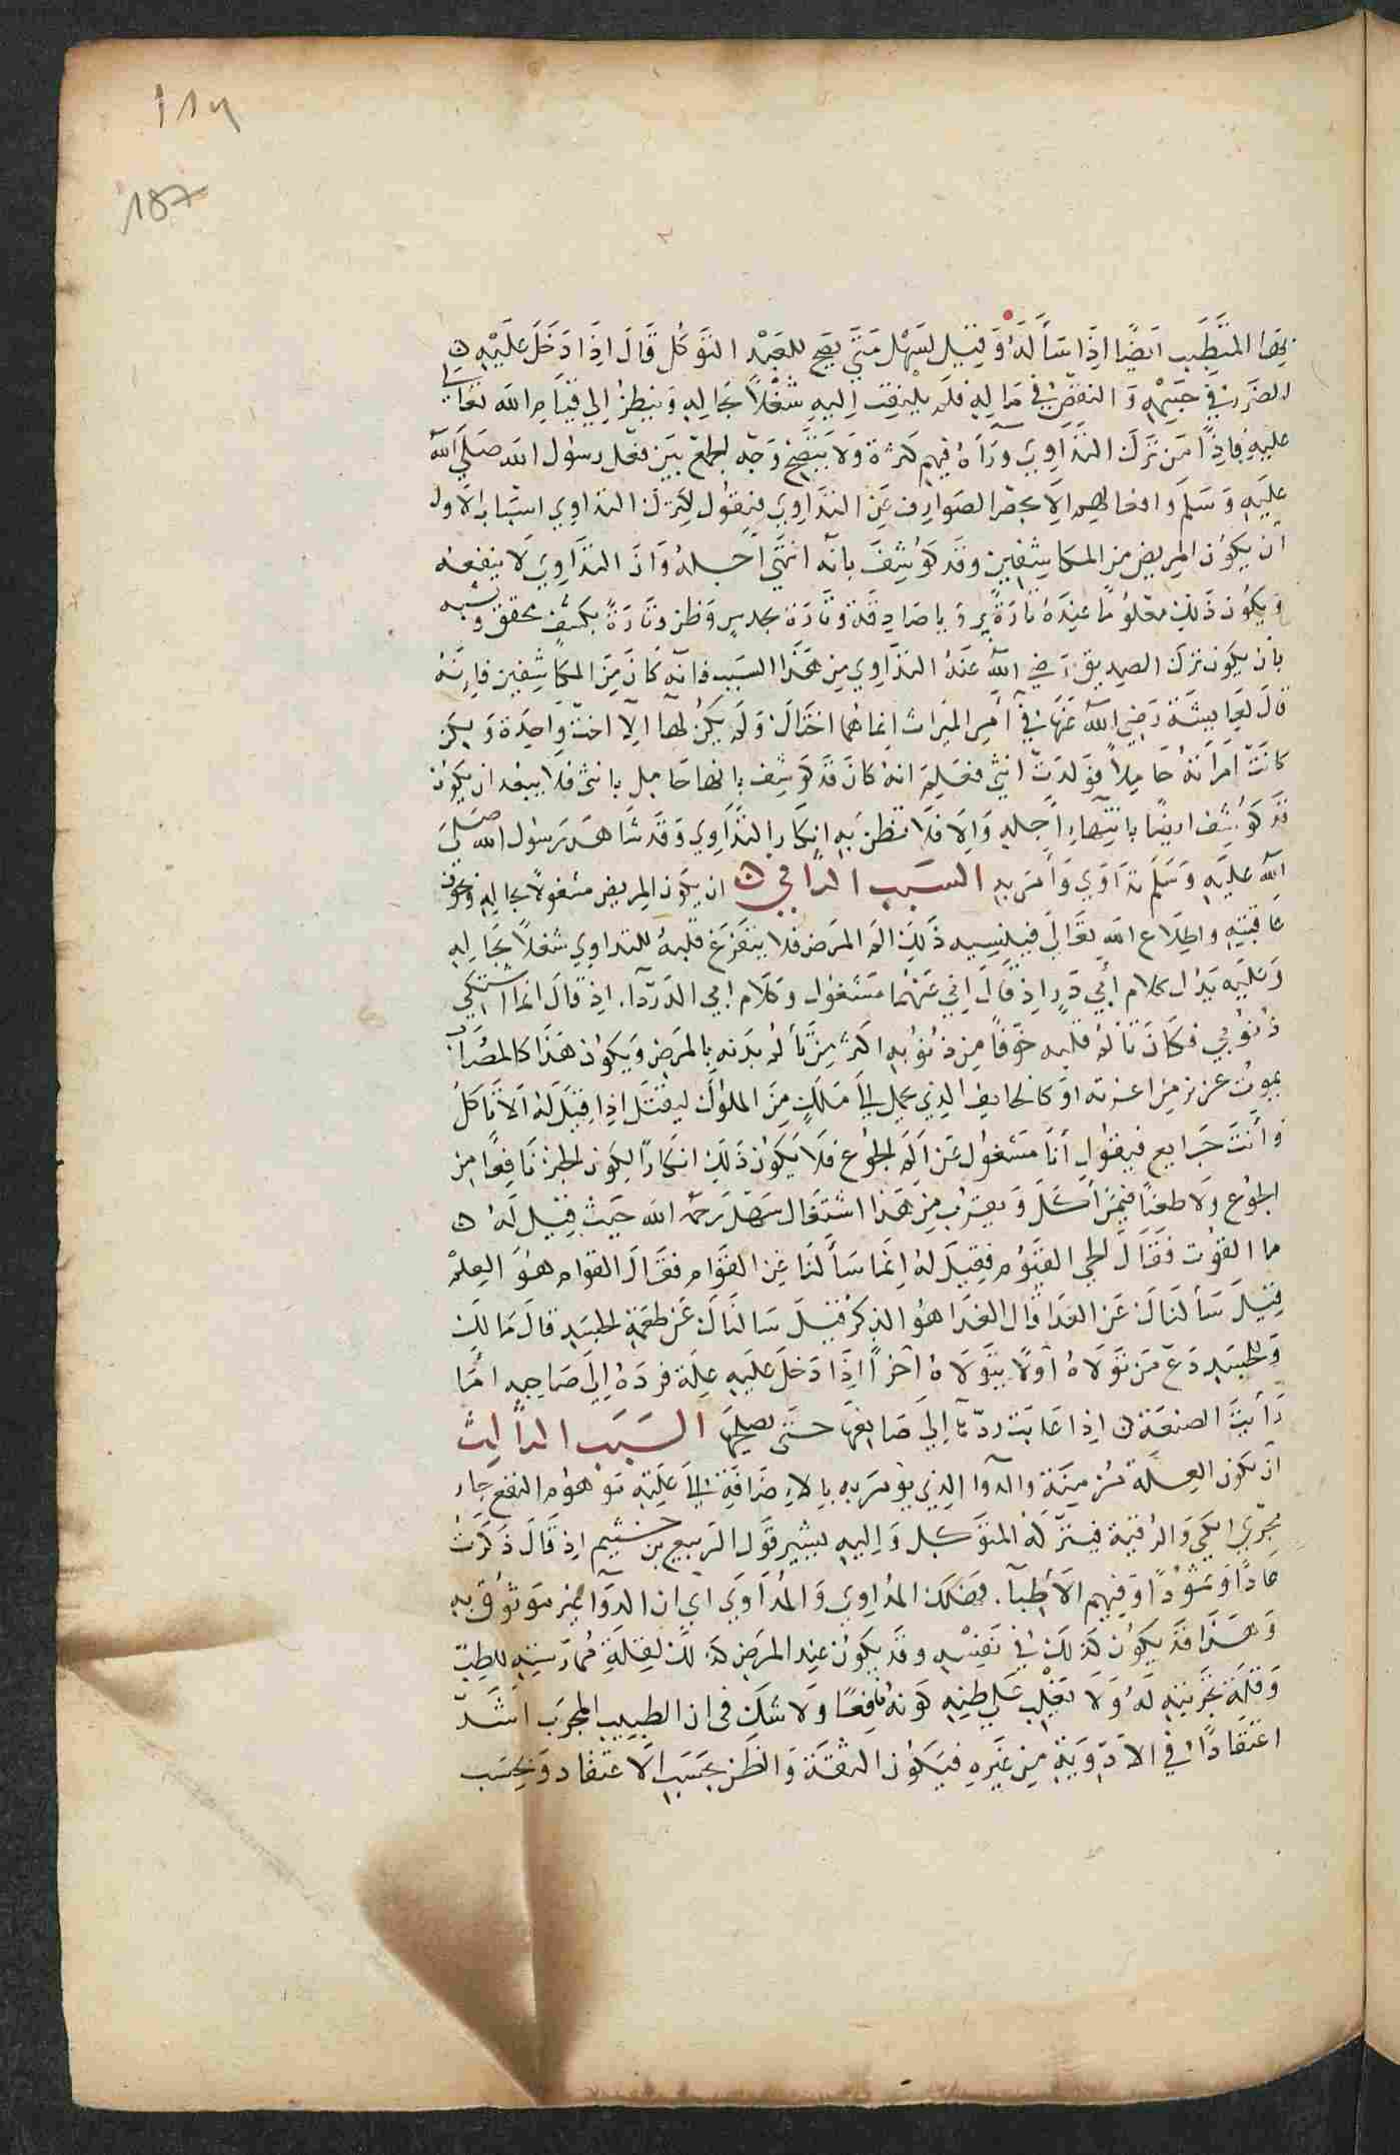 ١١٧
187
بها المتطبب ايضًا اذا سَأَلَهُ وَقيل لسَهْل مَتَي يصح للعَبْد التوكل قَالَ اذا دَخَلَ عَلَيْهِ
الضَرر في جسمِه وَالنقص في مَالِهِ فلم يلتفت اِليهِ شُغْلاً بحَالِهِ وَينظر الي قيام الله تعَالي
عليهِ فاذًا مَن تَرَكَ التدَاوِي وَرَآهُ فيهم كثرة وَلا يَتَّضِحُ وَجْه الجمع بَيْن فعْل رسُول الله صَلَّى الله
عليَهِ وَسَلَّم وافعالهم الاَّ بحصر الصَوارف عَن التدَاوِي فنقول لِترك التداوي اسْبَاب الاول
ان يكون المريض من المكَاشفين وقد كُوشِفَ بانَّه انتهَى اَجَلهُ وَانَّ التدَاوِي لَا ينفعه
وَيكون ذَلك معْلومًا عِندَهُ تارَةً برؤيا صَادِقة وتارَة بحدس وَظن وتارَةً بكشف محقق وَيشبه
بان يكون تَرك الصديق رَضِيَ اللهُ عَنهُ التدَاوِي من هَذَا السَبَب فانه كَانَ مِنَ المكَاشِفين فاِنّهُ
قال لعَايشة رَضِيَ اللهُ عَنهَا في اَمرِ الميراث انما هما اختَاك وَلَم يكن لهَا الاّ اخت وَاحِدَة وَلكن
كانَت امرَاته حَامِلاً فوَلَدَت انثى فعَلِمَ انهُ كَانَ قد كُوشف بانها حَامل بانثى فلا يبعد ان يكون
قد كُوشِف ايضًا بانتهَاءِ اَجلِهِ وَالّا فَلَا تظن به انكَار التدَاوِي وَقد شاهَد رَسُول الله صَلي
الله عليَهِ وَسَلّم تدَاوَي وَاَمَر بِهِ السَبَب الثاني ان يكون المريض مشغولاً بحالِهِ وَبخوف
عَاقبتِهِ واطلاع اللهِ تعَالَى فينسيه ذَلِكَ الم المرَض فلا يتفرَّغ قلبهُ للتداوي شغلاً بحَالِهِ
وَعليَهِ يَدُل كلام اَبي ذَر اذ قَالَ اِني عَنهُما مَشغول وَكلام ابي الدَردَآ. اذ قَالَ انما اشتكي
ذُنُوبي فكَانَ تَألم قلبه خَوفًا مِن ذنُوبِهِ اكثَر مِن تَألم بدَنهِ بالمَرض وَيكون هَذَا كالمصَاب
بموت عزيز من اعزته اَو كالخايف الذِي يحمل الي مَلك مِنَ الملوك ليقتل اِذَا قيلَ لَهُ الَا تاكل
وَاَنتَ جَايع فيقول اَنَا مَشغول عَن اَلم الجوع فلا يكون ذَلك انكارًا لكون الخبز نَافِعًا من
الجوع وَلا طعنًا فيمَن اَكلَ وَيقرب مِن هَذا اشتغَال سَهل رَحِمَهُ الله حَيث قيل لَهُ
ما القوت فقَالَ الحي القيوم فقيلَ لهُ اِنما سَألنَا عَن القوام فقَالَ القوام هوَ العِلم
قيلَ سَألنَاك عَن الغدَا قال الغدَا هو الذكر قيلَ سَالنَاك عَن طعمة الجسَد قالَ مَا لك
وَالجسَد دَع مَن تَوَلَّاهُ اوَّلاً يتَوَلَّاهُ آخرًا اِذَا دَخلَ عليَهِ عِلَّة فردَّهُ الي صَاحبهِ امَا
رَأيتَ الصنعَة اذا عَابَت ردّهَا اِلَى صَانِعَها حَتَى يصلحَهَا السَبَب الثالِث
ان تكون العِلَّة مُزمِنَة والدوا الذِي يومَر بِهِ بِالاِضَافَةِ الي عِلتِه موهوم النفع جار
مجرَى الكي وَالرقيَة فيتركهُ المتوَكل وَاِليهِ يشير قول الرَبيع بن خثيم اذ قَالَ ذكَرت
عَادًا وَثمُودًا وَفيهم الاَطبآ. فهلَك المدَاوِي وَالمدَاوَي اي ان الدوَا غير موثوق بِهِ
وَهَذَا قد يكون كذَلك في نَفسِهِ وقد يكون عند المرَيض كذَلك لقلة مُمَارَستهِ للطب
وَقلة تجربتِه لَهُ وَلَا يغلب عَلي ظنهِ كونهُ نَافِعًا وَلا شَك فى ان الطبيب المجرب اَشدّ
اعتقادًا في الاَدويَة مِن غيرهِ فيَكون الثقة وَالظن بحسَب الاعتقاد وَبحسَب